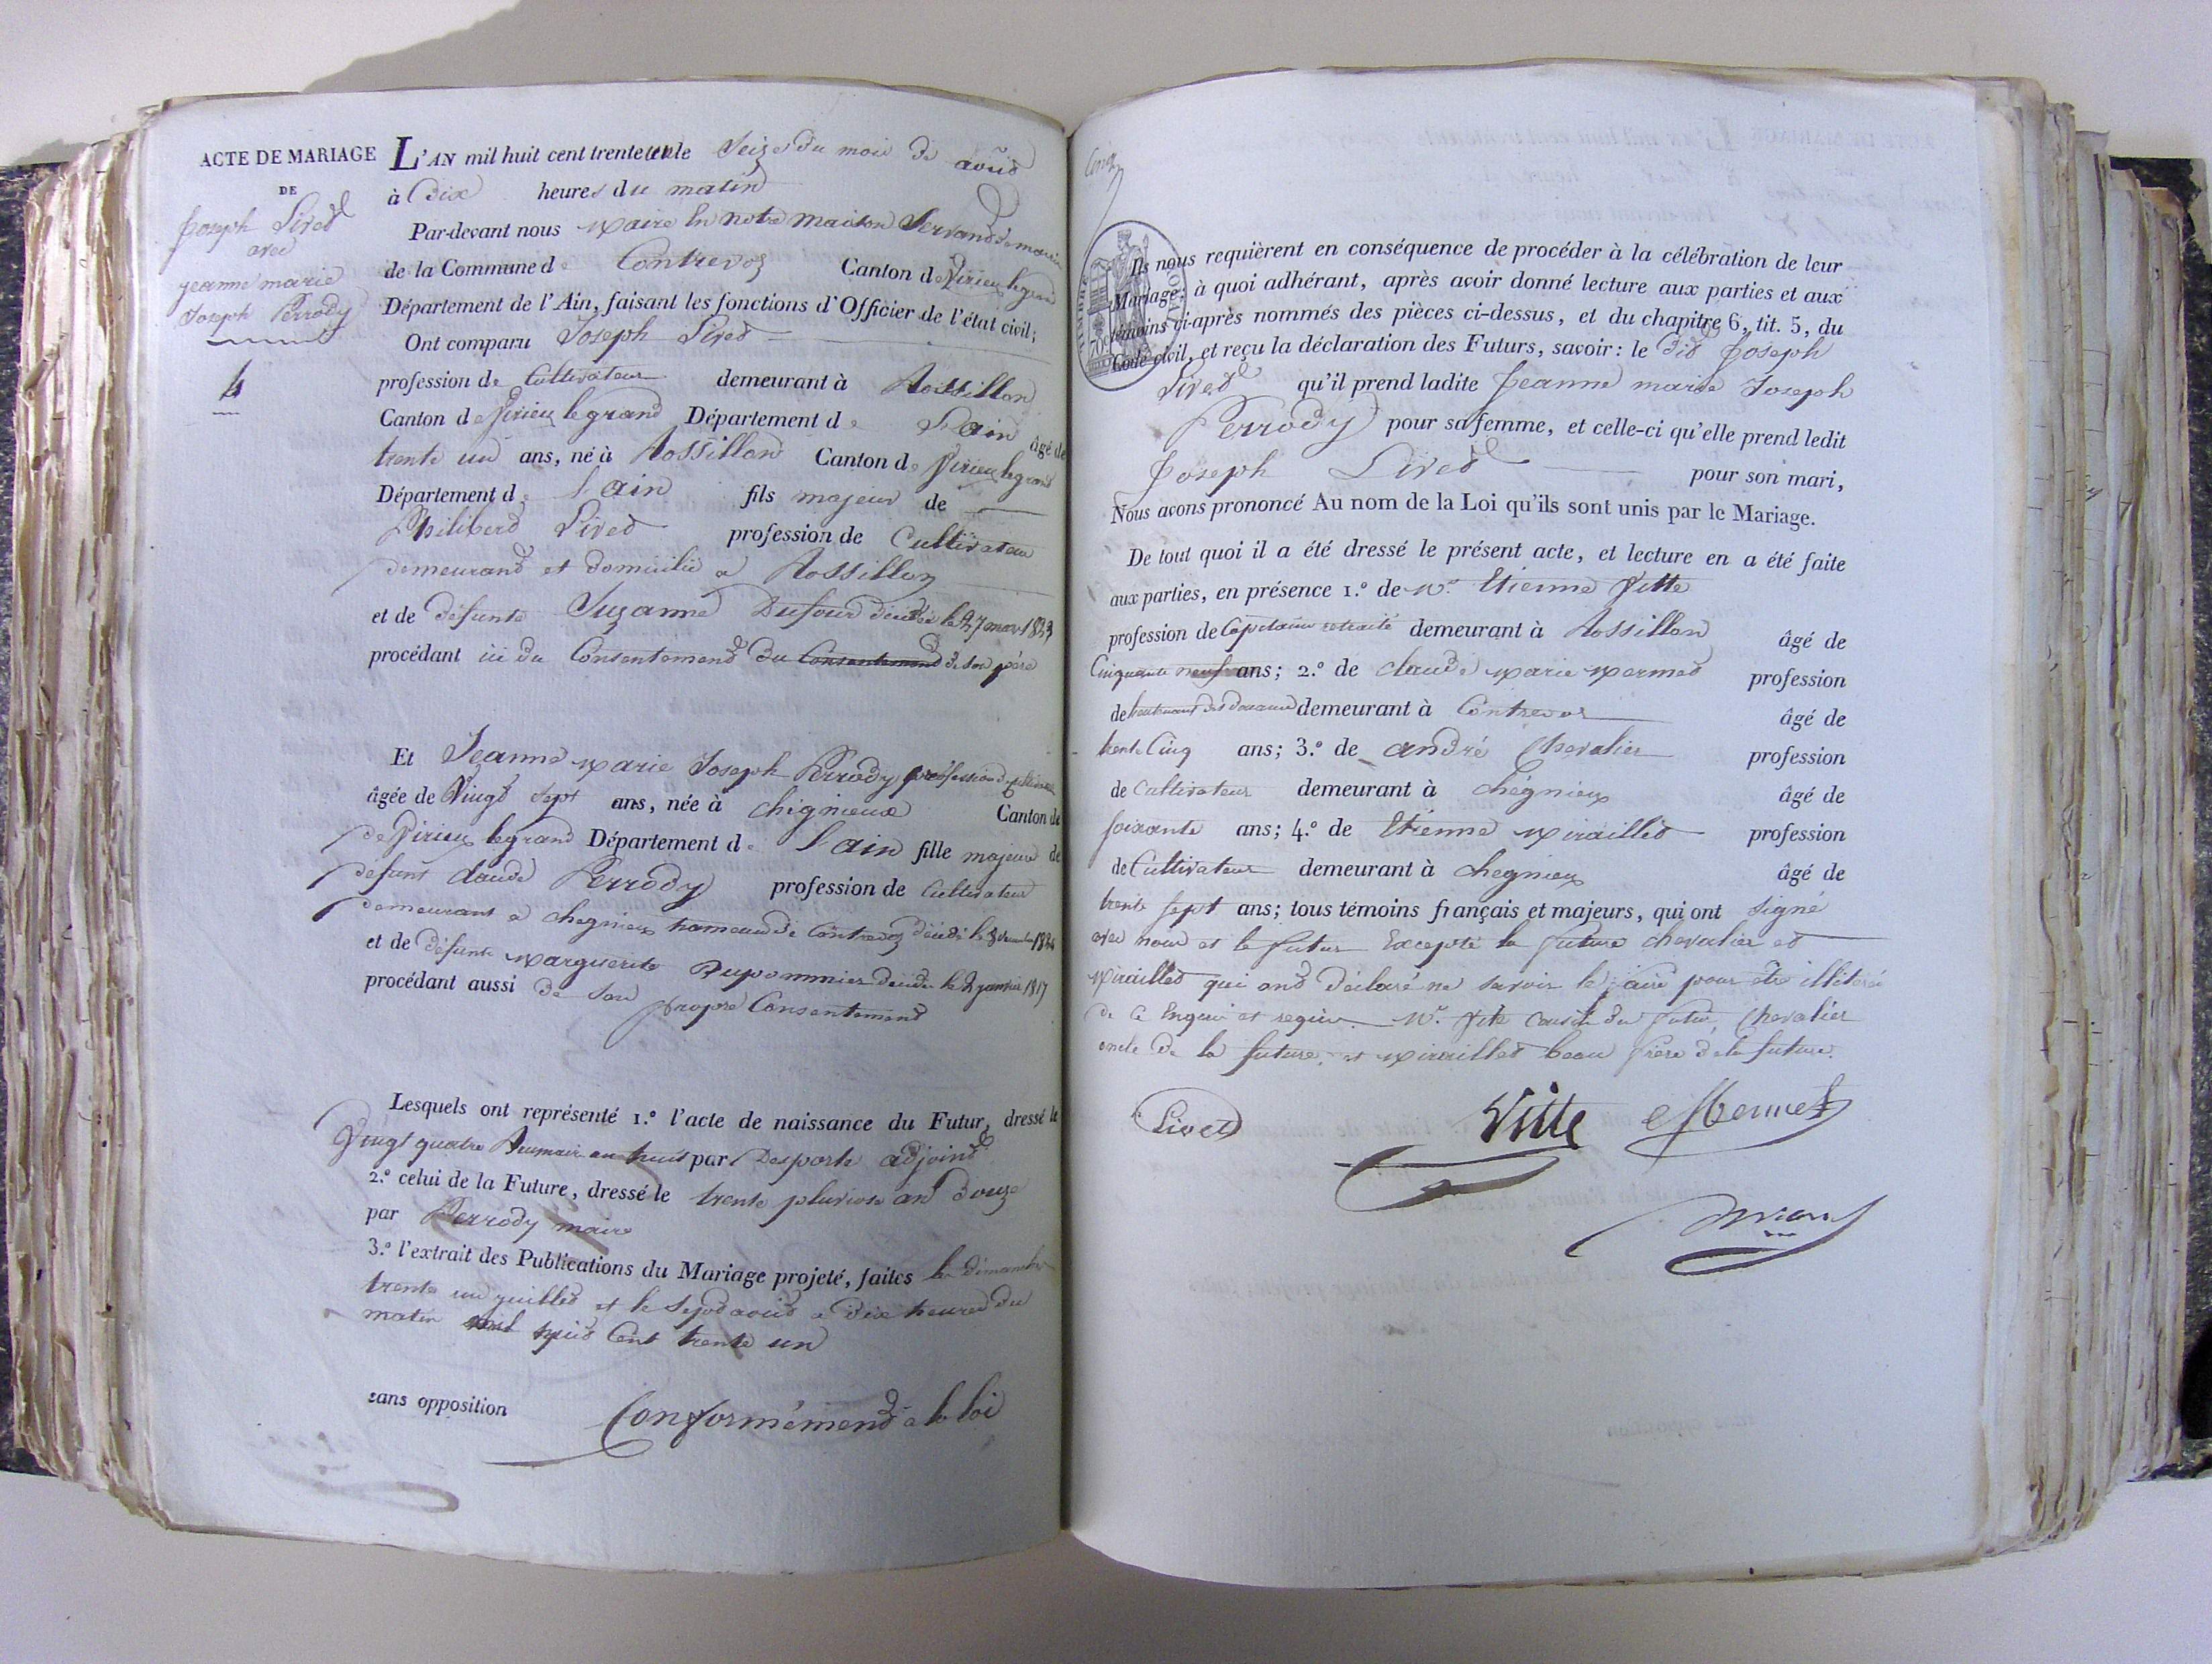 ACTE DE MARIAGE
DE
Joseph Livet
avec
jeanne marie
Joseph Perrody
4
L'AN mil huit cent trente un le Seize du mois de août
à Dix heures du matin
Par-devant nous maire En notre maison Servant de mairie
de la Commune de Contrevoz Canton de Virieu legrand
Département de l'Ain, faisant les fonctions d'Officier de l'état civil;
Ont comparu Joseph Livet
profession de Cultivateur demeurant à Rossillon
Canton de Virieu le grand Département de L'Ain âgé de
trente un ans, né à Rossillon Canton de Virieu legrand
Département de l'ain fils majeur de
Philibert Livet profession de Cultivateur
demeurant et domicilié a Rossillon
et de défunte Suzanne Dufour décédée le 27 mars
procédant ici du Consentement du Consentement de son père
Et Jeanne marie Joseph Perrody profession de
âgée de Vingt Sept ans, née à chignieux Canton de
de Virieu legrand Département de L'ain fille majeure de
défunt claude Perrody profession de Cultivateur
demeurant a chegnieu hameau de Contrevoz décédé le
et de défunte marguerite Dupommier décédée le 2 janvier 1817
procédant aussi de son
propre Consentement
Lesquels ont représenté 1.º l'acte de naissance du Futur, dressé le
Vingt quatre Brumaire an huit par Desporte adjoint
2.º celui de la Future, dressé le trente pluviose an douze
par Perrody maire
3.º l'extrait des Publications du Mariage projeté, faites les dimanches
trente un juillet et le Sept août a dix heures du
matin mil huit Cent trente un
sans opposition Conformément a la loi
Cinq
TIMBRE ROYAL
70 c
Ils nous requièrent en conséquence de procéder à la célébration de leur
Mariage; à quoi adhérant, après avoir donné lecture aux parties et aux
témoins ci-après nommés des pièces ci-dessus, et du chapitre 6, tit. 5, du
Code civil, et reçu la déclaration des Futurs, savoir: le dit Joseph
Livet qu'il prend ladite Jeanne marie Joseph
Perrody pour sa femme, et celle-ci qu'elle prend ledit
Joseph Livet pour son mari,
Nous avons prononcé Au nom de la Loi qu'ils sont unis par le Mariage.
De tout quoi il a été dressé le présent acte, et lecture en a été faite
aux parties, en présence 1.º de Mr. Etienne Vitte
profession de Capitaine retraité demeurant à Rossillon âgé de
Cinquante neuf ans; 2.º de claude marie mermet profession
de lieutenant des douanes demeurant à Contrevoz âgé de
trente Cinq ans; 3.º de andré Chevalier profession
de Cultivateur demeurant à chégnieux âgé de
soixante ans; 4.º de Etienne miraillet profession
de Cultivateur demeurant à chegnieux âgé de
trente sept ans; tous témoins français et majeurs, qui ont signé
avec nous et le futur Excepté la future chevalier et
Miraillet qui ont déclaré ne savoir le faire pour être illétérés
de ce Enquis et requis. Mr. Vitte cousin du futur, Chevalier
oncle de la future, et miraillet beau frère de la future.
Livet Vitte Mermet